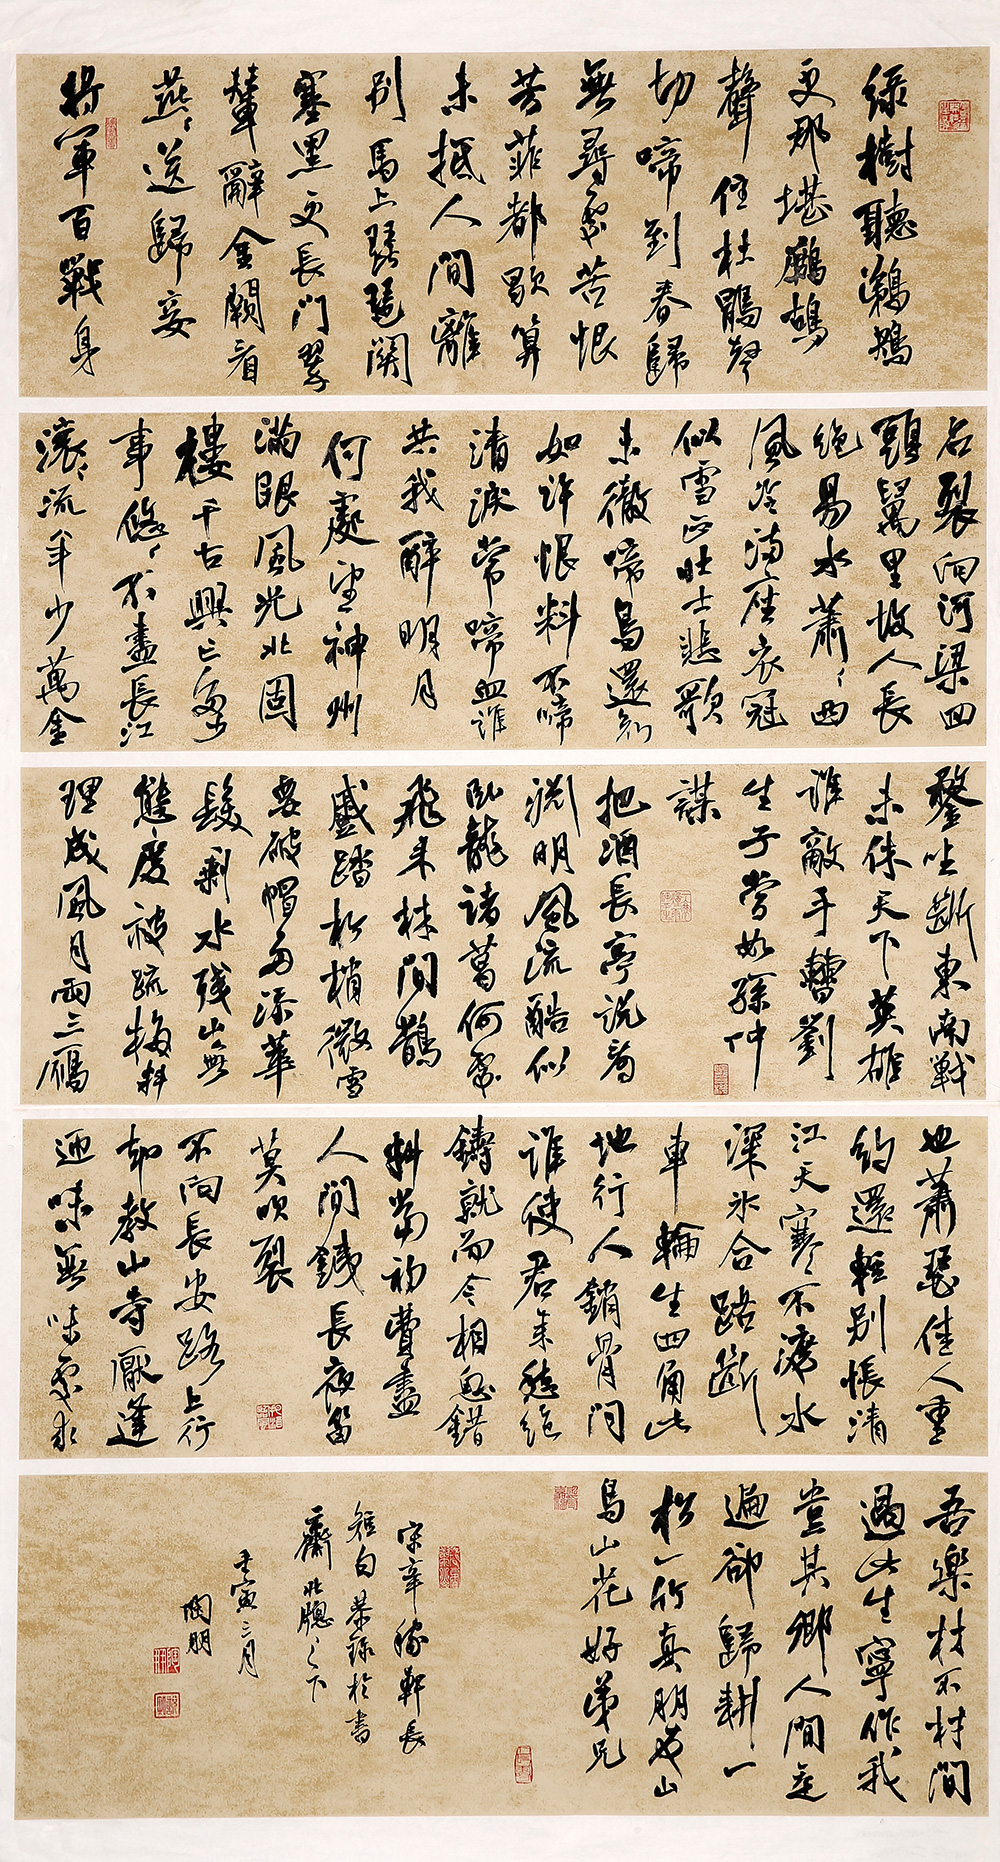 綠樹聽鵜鴂
更那堪鷓鴣
聲住杜鵑聲
切啼到春歸
無尋處苦恨
芳菲都歇算
未抵人間離
別馬上琵琶關
塞黑更長門翠
輦辭金闕看
燕燕送歸妾
將軍百戰身
名裂向河梁回
頭萬里故人長
絕易水蕭蕭西
風冷滿座衣冠
似雪正壯士悲歌
未徹啼鳥還知
如許恨料不啼
清淚常啼血誰
共我醉明月
何處望神州
滿眼風光北固
樓千古興亡多少
事悠悠不盡長江
滾滾流年少萬金
鍪坐斷東南戰
未休天下英雄
誰敵手曹劉
生子當如孫仲
謀
把酒長亭說看
淵明風流酷似
臥龍諸葛何處
飛來林間鵲
蹙踏松梢微雪
要破帽多添華
髮剩水殘山無
態度被疏梅料
理成風月兩三雁
也蕭瑟佳人重
約還輕別悵清
江天寒不渡水
深冰合路斷
車輪生四角此
地行人銷骨問
誰使君來愁絕
鑄就而今相思錯
料當初費盡
人間鐵長夜笛
莫吹裂
不向長安路上行
却教山寺厭逢
迎味無味處求
吾樂材不材間
過此生寧作我
豈其卿人間走
遍卻歸耕一
松一竹真朋友山
鳥山花好弟兄
宋辛稼軒長
短句恭錄於書
齋北聰之下
壬寅三月
陶朋